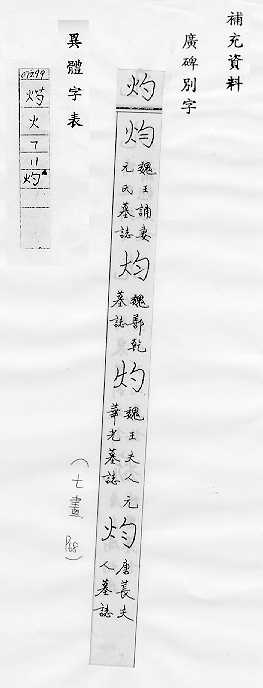 補充資料
廣碑別字
灼
灼
魏王誦妻
元氏墓誌
灼
魏鄭乾
墓誌
灼
魏王夫人元
華光墓誌
灼
唐萇夫
人墓誌
(七畫 P68)
異體字表
灼
火
7
11
灼